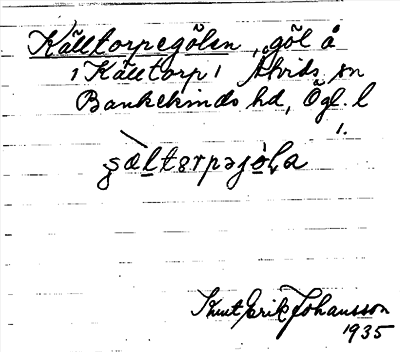 Källtorpegölen, göl å
1 Källtorp 1 Åtvids sn
Bankekinds hd, Ögl. l
1.
ʂæltɷrpəjòḷa
Knut Erik Johansson
1935